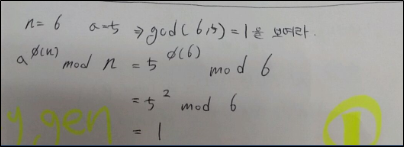 n=6 a=5 ⇒ gcd(6,5)=1을 보여라.
a^φ(n) mod n = 5^φ(6) mod 6
= 5² mod 6
= 1
y,gen
1